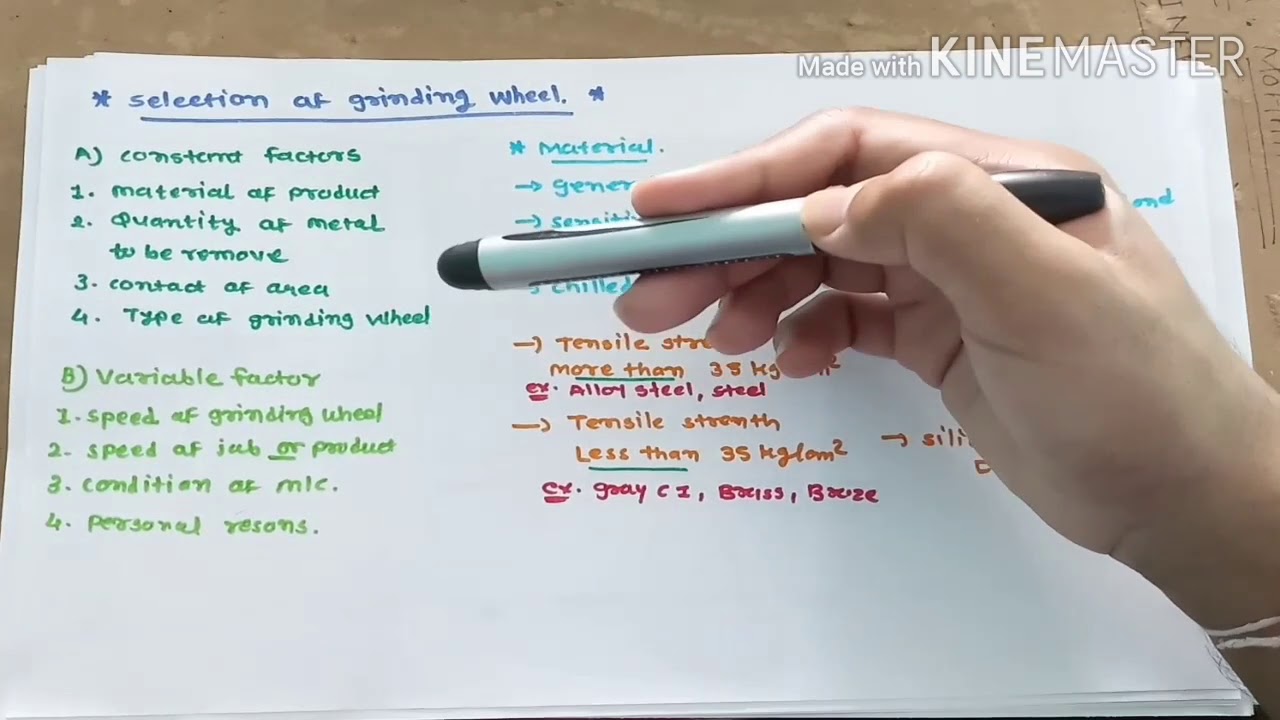 Made with KINEMASTER
* Selection of grinding wheel. *
A) constent factors
1. material of product
2. Quantity of metal
to be remove
3. contact of area
4. Type of grinding wheel
B) Variable factor
1. speed of grinding wheel
2. speed of job or product
3. condition of m/c.
4. personal resons.
* Material.
→ Tensile
more than 35 kg
ex. Alloy steel, steel
→ Tensile strenth
Less than 35 kg/cm²
ex. gray C I, Briss, Broze